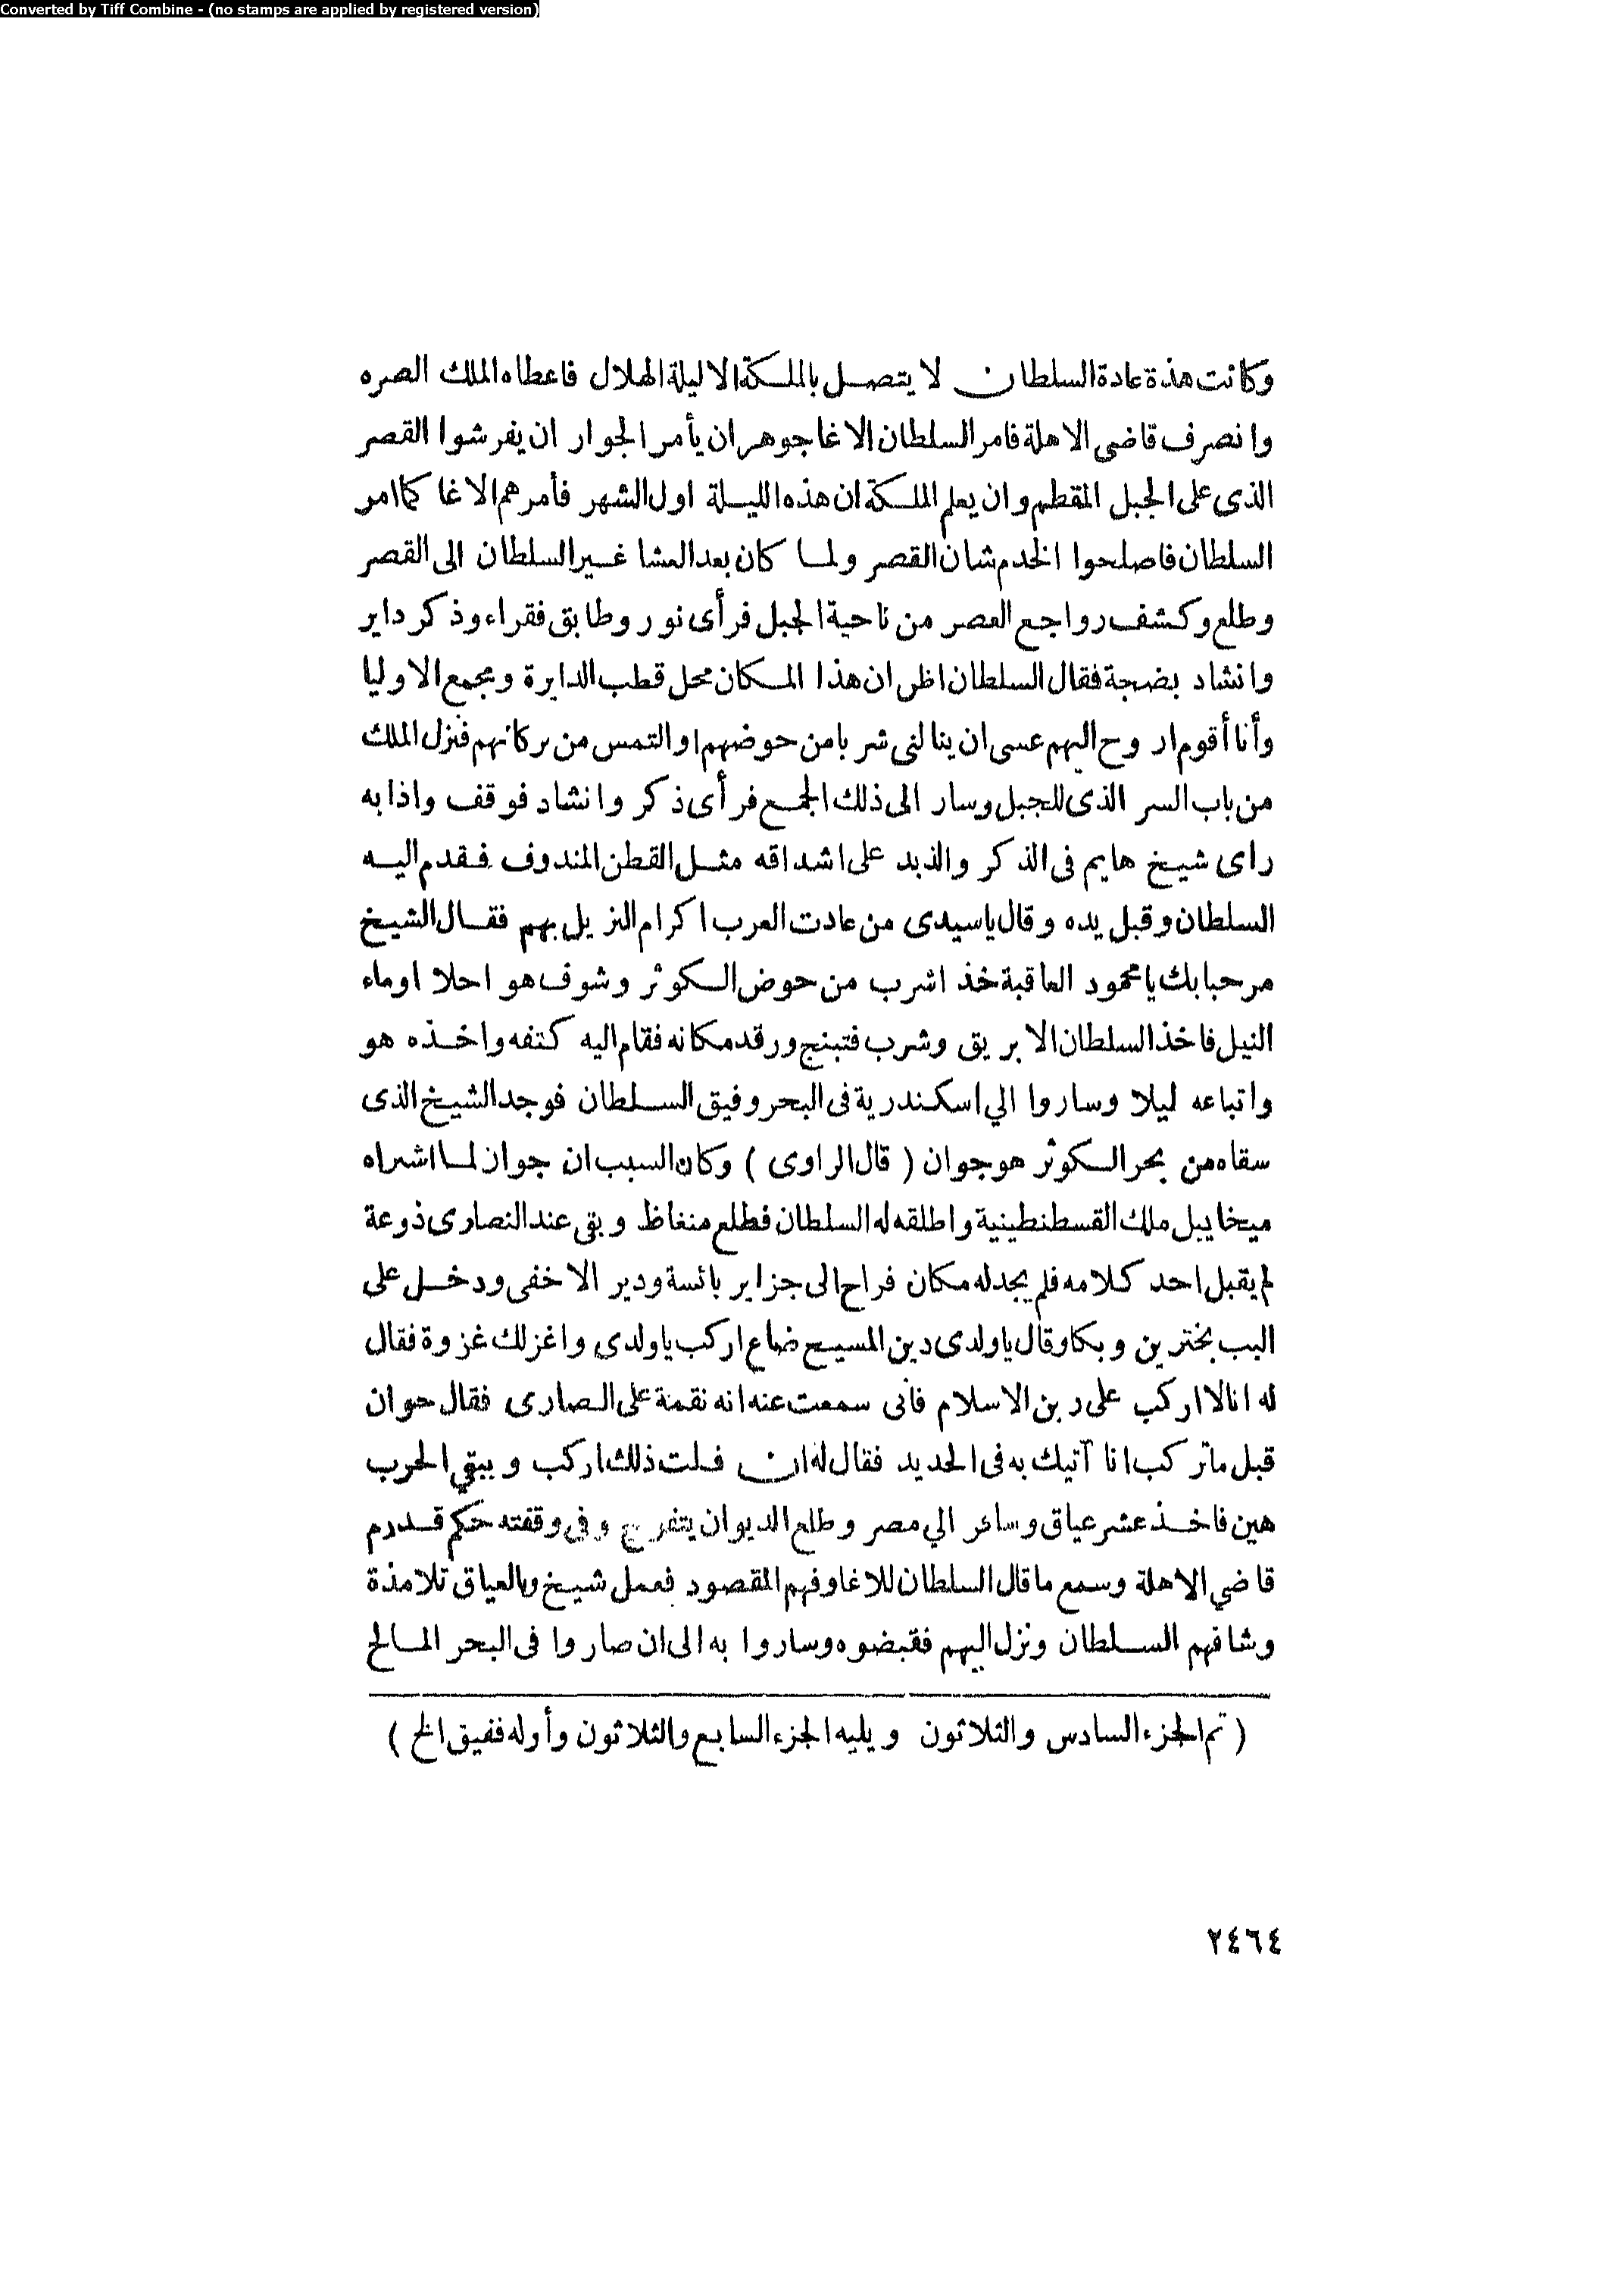 Converted by Tiff Combine - (no stamps are applied by registered version)
وكانت هذة عادة السلطان لا يتصل بالملكة الا ليلة الهلال فاعطاه الملك الصره
وانصرف قاضى الاهلة فامر السلطان الاغا جوهر ان يأمر الجوار ان يفرشوا القصر
الذى على الجبل المقطم وان يعلم الملكة ان هذه الليلة اول الشهر فأمرهم الاغا كما امر
السلطان فاصلحوا الخدم شان القصر ولما كان بعد العشا غير السلطان الى القصر
وطلع وكشف رواجع العصر من ناحية الجبل فرأى نور وطابق فقراء وذكر داير
وانشاد بضجة فقال السلطان اظن ان هذا المكان محل قطب الدايرة ومجمع الاوليا
وأنا أقوم اروح اليهم عسى ان ينالنى شربا من حوضهم او التمس من بركاتهم فنزل الملك
من باب السر الذى للجبل وسار الى ذلك الجمع فرأى ذكر وانشاد فوقف واذا به
راى شيخ هايم فى الذكر والذبد على اشداقه مثل القطن المندوف فقدم اليه
السلطان وقبل يده وقال ياسيدى من عادت العرب اكرام النزيل بهم فقال الشيخ
مرحبا بك يا محمود العاقبة خذ اشرب من حوض الكوثر وشوف هو احلا اوماء
النيل فاخذ السلطان الابريق وشرب فتبنج ورقد مكانه فقام اليه كتفه واخذه هو
واتباعه ليلا وساروا الي اسكندرية فى البحر وفيق السلطان فوجد الشيخ الذى
سقاه من بحر الكوثر هو جوان ( قال الراوى ) وكان السبب ان جوان لما اشراه
ميخاييل ملك القسطنطينية واطلقه له السلطان فطلع منغاظ وبقى عند النصارى ذوعة
لم يقبل احد كلامه فلم يجد له مكان فراح الى جزاير بائسة ودير الاخفى ودخل على
البب بخترين وبكا وقال ياولدى دين المسيح ضاع اركب ياولدى واغزلك غزوة فقال
له انا لا اركب على دين الاسلام فانى سمعت عنه انه نقمة على الصارى فقال جوان
قبل ما تركب انا آتيك به فى الحديد فقال له ان فلت ذلك اركب ويبقي الحرب
هين فاخذ عشر عياق وسائر الي مصر وطلع الديوان يتفرج وفى وقفته حكم قدرم
قاضي الاهلة وسمع ما قال السلطان للاغا وفهم المقصود فعمل شيخ وبالعياق تلامذة
وشافهم السلطان ونزل اليهم فقبضوه وساروا به الى ان صاروا فى البحر المالح
( تم الجزء السادس والثلاثون ويليه الجزء السابع والثلاثون وأوله ففيق الخ )
٢٤٦٤